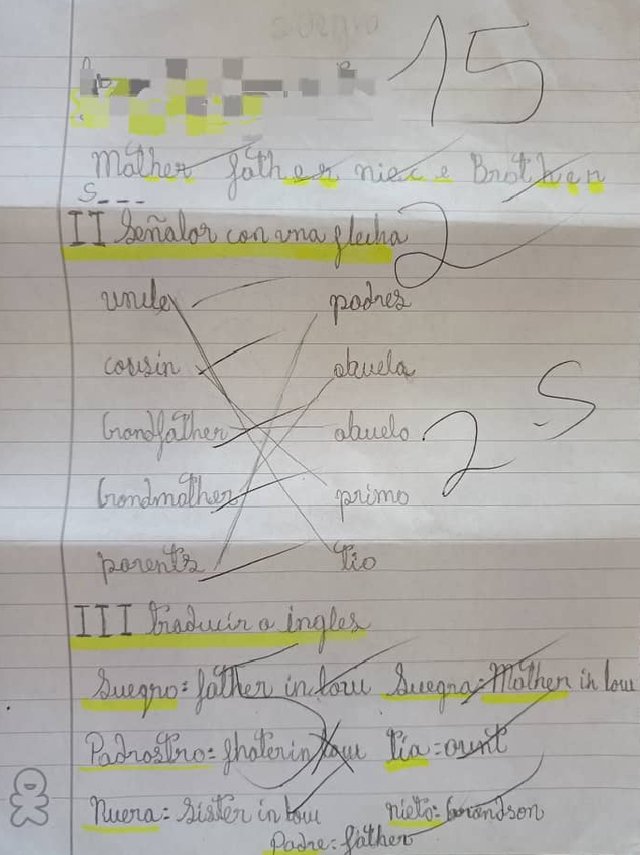 15
Mather father niece Brother
S---
II Señalar con una flecha 2
uncle padres
cousin abuela
Grandfather abuelo 2.5
Grandmather primo
parents tio
III traducir a ingles
Suegro: father in low Suegra: Mather in low
Padrostro: fhater in low tia: ount
Nuera: Sister in low nieto: Grandson
Padre: father